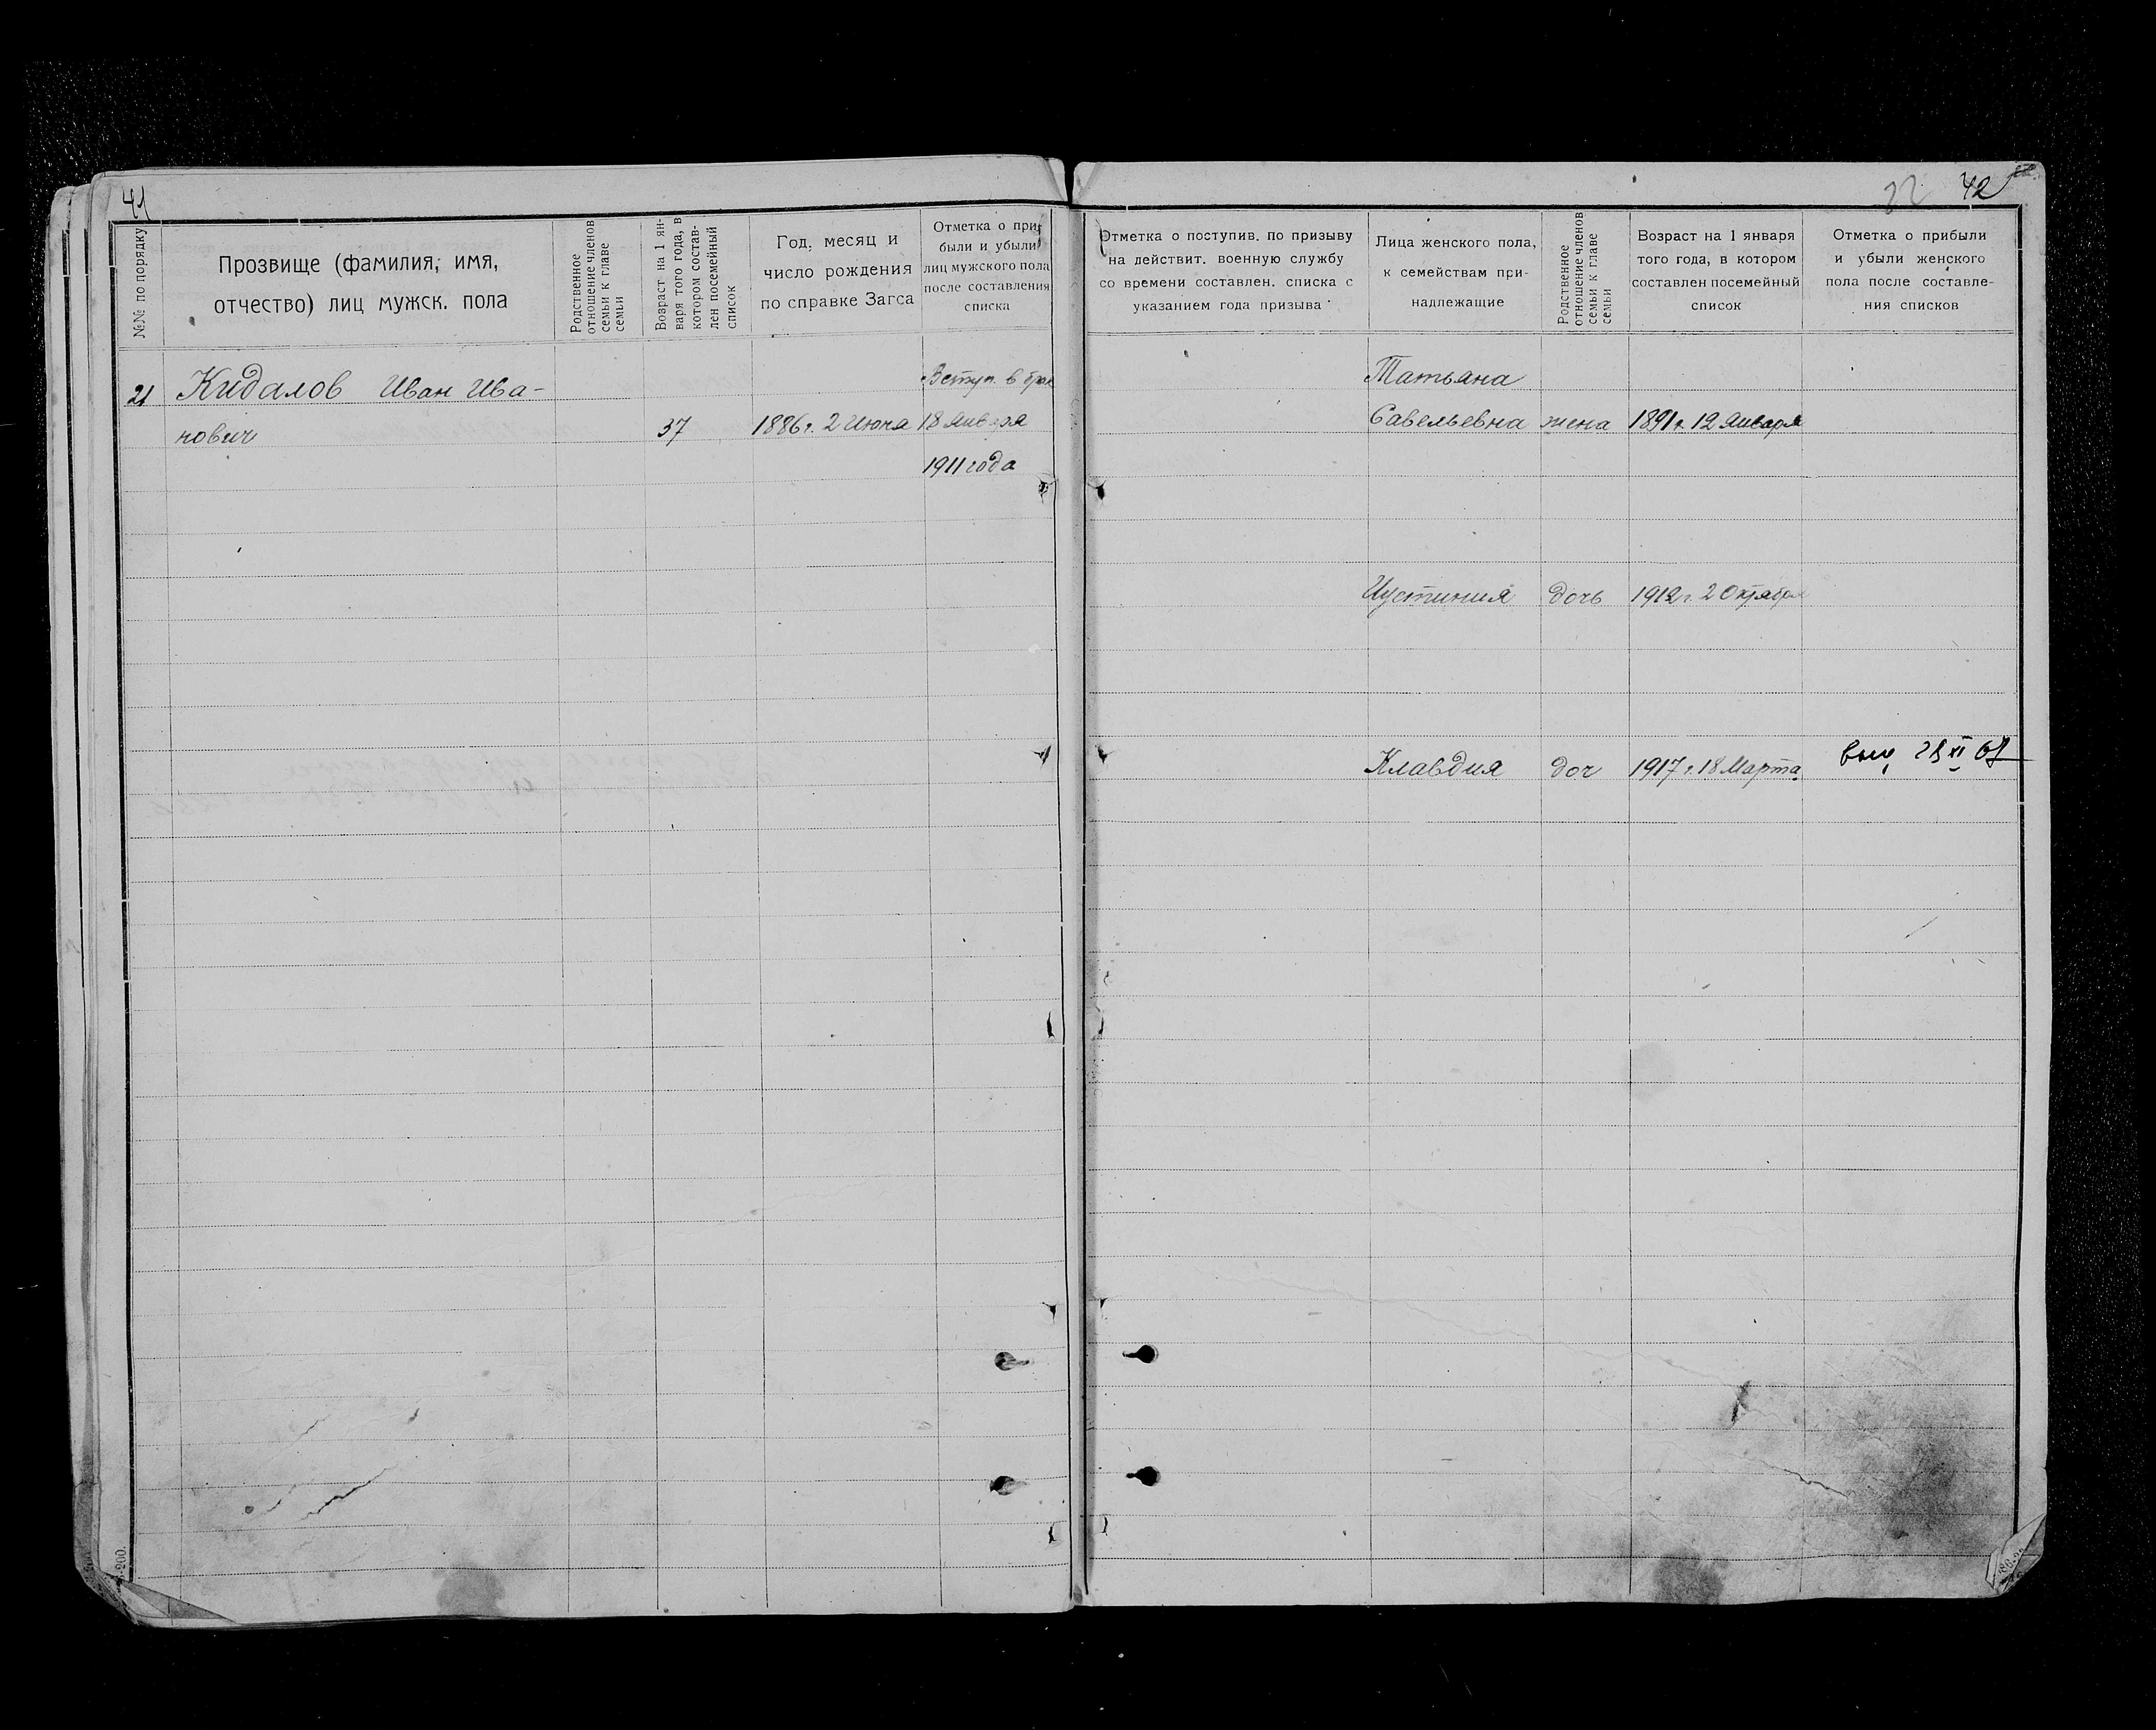 41
№№ по порядку
Прозвище (фамилия, имя,
отчество) лиц мужск. пола
Родственное
отношение членов
семьи к главе
семьи
Возраст на 1 ян-
варя того года, в
котором состав-
лен посемейный
список
Год, месяц и
число рождения
по справке Загса
Отметка о при-
были и убыли
лиц мужского пола
после составления
списка
21
Кидалов Иван Ива-
нович
37
1886 г. 2 Июня
Вступ. в брак
18 Января
1911 года
200.
22 42
Отметка о поступив. по призыву
на действит. военную службу
со времени составлен. списка с
указанием года призыва
Лица женского пола,
к семействам при-
надлежащие
Родственное
отношение членов
семьи к главе
семьи
Возраст на 1 января
того года, в котором
составлен посемейный
список
Отметка о прибыли
и убыли женского
пола после составле-
ния списков
Татьяна
Савельевна жена 1891 г. 12 Января
Иустиния дочь 1912 г. 2 Октября
Клавдия доч 1917 г. 18 Марта